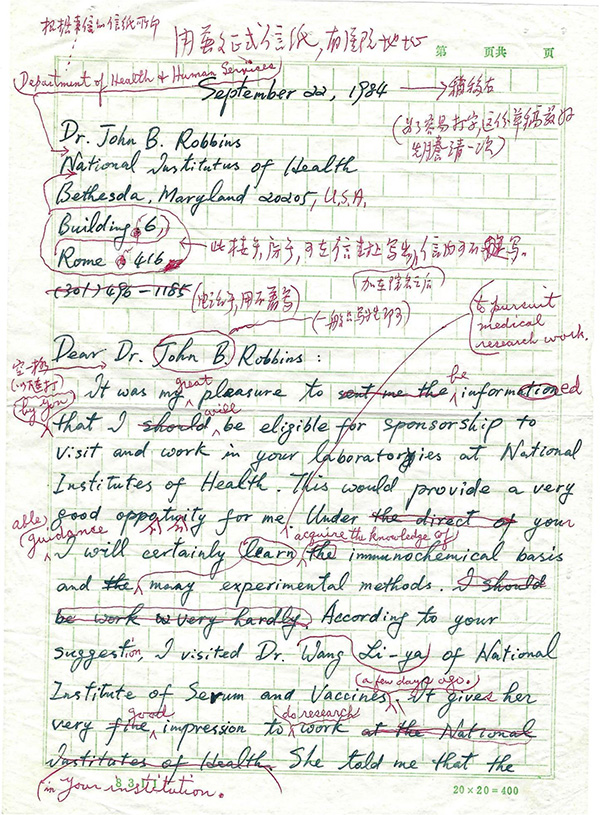 用英文正式信纸,有医院地址
第 页共 页
Department of Health & Human Services
September 22, 1984 → 稍移右
Dr. John B. Robbins
(为了容易打字,这份草稿最好
先謄清一次)
National Institutus of Health
Bethesda, Maryland 20205, U.S.A.
Building 6,
Rome 416
(301) 496-1185 (电话号,用不着写)
加在院名之后
to pursuit
medical
research work.
Dear Dr. John B. Robbins :
空格
It was my great pleasure to sent me the be informationed
by you
that I should will be eligible for sponsorship to
visit and work in your laboratories at National
Institutes of Health. This would provide a very
good oppotunity for me. Under the direct of your
able guidance
I will certainly learn the acquire the knowledge of immunochemical basis
and the many experimental methods. I should
be work w very hardly. According to your
suggestion, I visited Dr. Wang Li-ya of National
Institute of Serum and Vaccines (a few days ago.) It gives her
very fine good impression to do research work at the National
Institutes of Health. She told me that the
in your institution.
20×20=400